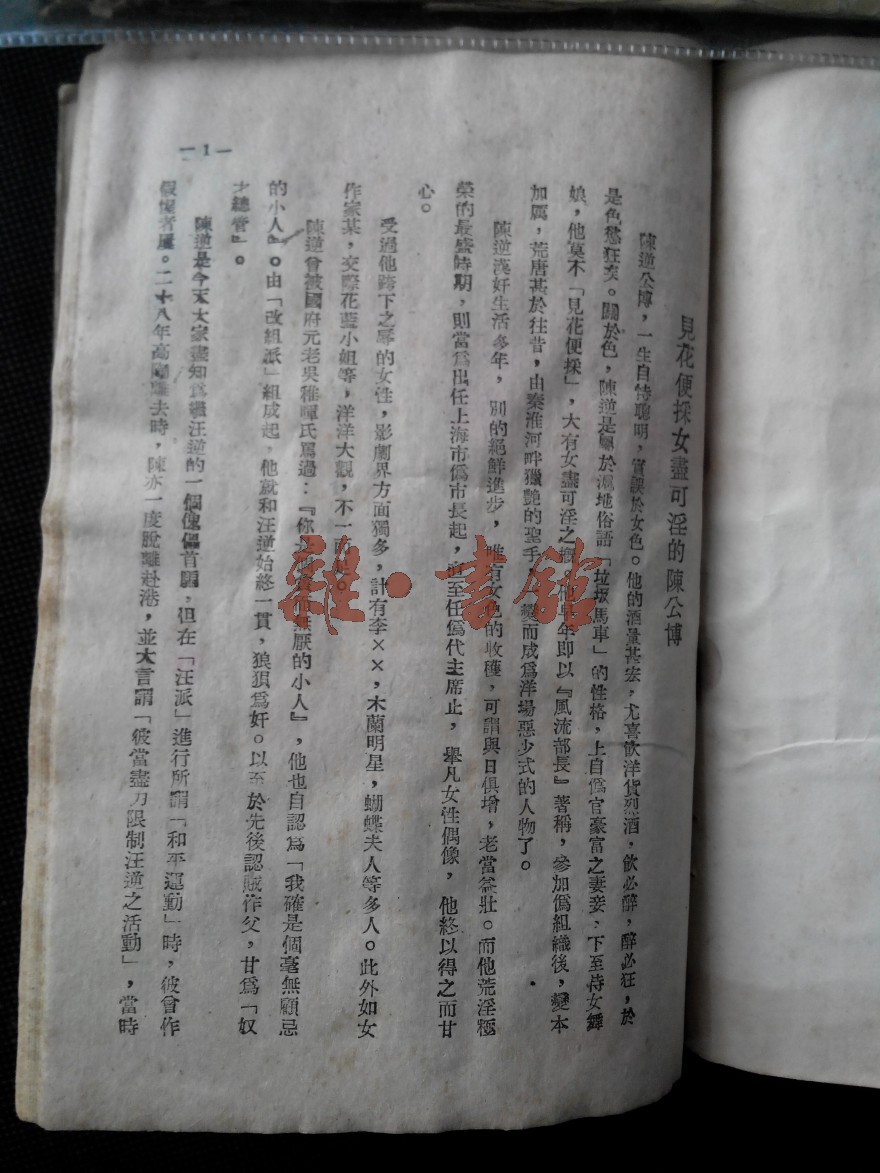 見花便採女盡可淫的陳公博
陳逆公博，一生自恃聰明，實誤於女色。他的酒量甚宏，尤喜飲洋貨烈酒，飲必醉，醉必狂，於
是色慾狂矣。關於色，陳逆是屬於滬地俗語「垃圾馬車」的性格，上自僞官豪富之妻妾，下至侍女舞
娘，他莫不「見花便採」，大有女盡可淫之概。他早年即以『風流部長』著稱，參加僞組織後，變本
加厲，荒唐甚於往昔，由秦淮河畔獵艷的聖手，變而成爲洋場惡少式的人物了。
陳逆漢奸生活多年，別的絕鮮進步，唯有女色的收穫，可謂與日俱增，老當益壯。而他荒淫極
榮的最盛時期，則當爲出任上海市僞市長起，直至任僞代主席止，舉凡女性偶像，他終以得之而甘
心。
受過他跨下之辱的女性，影劇界方面獨多，計有李××，木蘭明星，蝴蝶夫人等多人。此外如女
作家某，交際花藍小姐等，洋洋大觀，不一而足。
陳逆曾被國府元老吳稚暉氏罵過：『你是個貪而無厭的小人』，他也自認爲「我確是個毫無顧忌
的小人』。由「改組派」組成起，他就和汪逆始終一貫，狼狽爲奸。以至於先後認賊作父，甘爲「奴
才總管』。
陳逆是今天大家盡知爲繼汪逆的一個傀儡首腦，但在「汪派」進行所謂「和平運動」時，彼曾作
假惺者屢。二十八年高陶離去時，陳亦一度脫離赴港，並大言謂「彼當盡力限制汪逆之活動」，當時
—1—
雜·書館